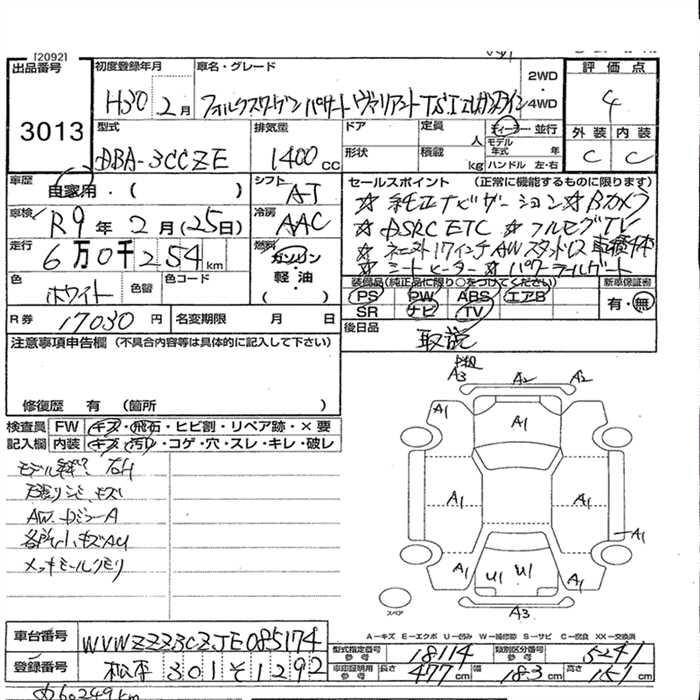 [2092]
出品番号 初度登録年月 車名・グレード
3013
H30 2月 フォルクスワーゲン パサート ヴァリアント TSI エレガンスライン
2WD ・ 4WD
評価点
4
外装 内装
C C
型式 排気量 ドア 定員 人 ディーラー・並行
DBA-3CCZE 1400cc 形状 積載 kg モデル年式 年 ハンドル 左・右
車歴 自家用・( ) シフト AT
セールスポイント (正常に機能するものに限ります)
☆ 純正ナビゲーション ☆ Bカメラ
☆ DSRC ETC ☆ フルセグTV
☆ シートヒーター ☆ パワーテールゲート
車検 R9年 2月(25日) 冷房 AAC
走行 6万0千254km 燃料 ガソリン・軽油( )
色 ホワイト 色替 色コード
装備品(純正品に限り○をつけてください) 新車保証書
PS PW ABS エアB 有・無
SR ナビ TV
R券 17030円 名変期限 月 日
後日品 取説
注意事項申告欄 (不具合内容等は具体的に記入して下さい)
修復歴 有 (箇所 )
検査員 FW キズ・飛石・ヒビ割・リペア跡・×要
記入欄 内装 キズ・汚れ・コゲ・穴・スレ・キレ・破レ
AW
各所小キズAU
メッキモールクモリ
A3 A2 A2
A1 A1 A1
A1 A1 A1
A1 U1 U1 A1
A3
スペア
A−キズ E−エクボ U−凹み W−補修跡 S−サビ C−腐食 XX−交換済
車台番号 WVWZZZ3CZJE085174
型式指定番号 参考 18114 類別区分番号 参考 5241
登録番号 松本 301 そ 1292
車庫証明用 参考 長さ 477cm 幅 183cm 高さ 151
60249km